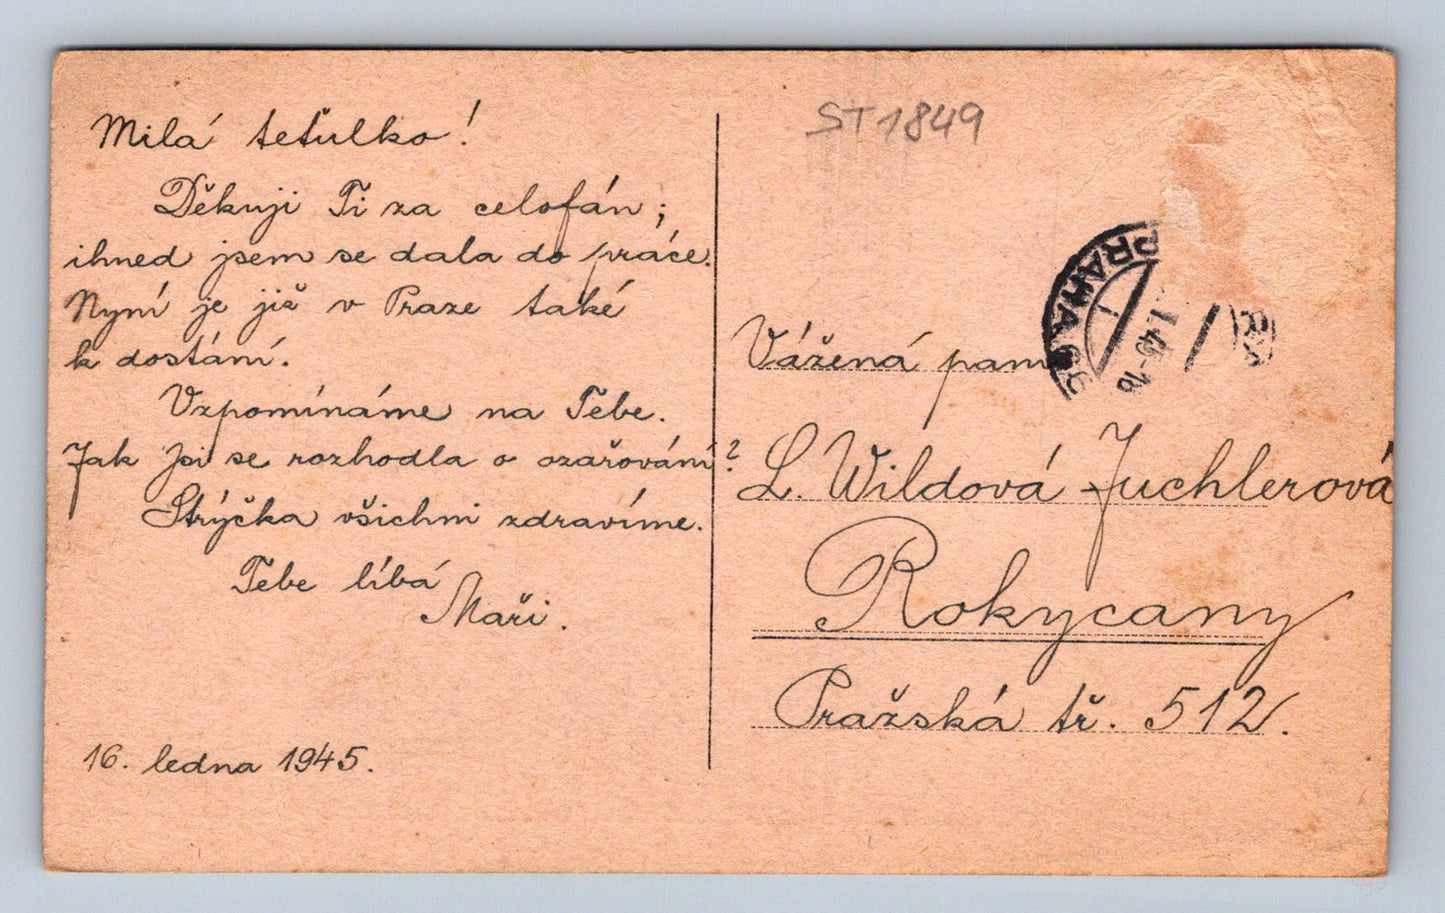 ST1849
Milá teťulko!
Děkuji Ti za celofán;
ihned jsem se dala do práce.
Nyní je již v Praze také
k dostání.
Vzpomínáme na Tebe.
Jak jsi se rozhodla o ozařování?
Strýčka všichni zdravíme.
Tebe líbá
Maři.
16. ledna 1945.
PRAHA
Vážená paní
L. Wildová-Juchlerová
Rokycany
Pražská tř. 512.